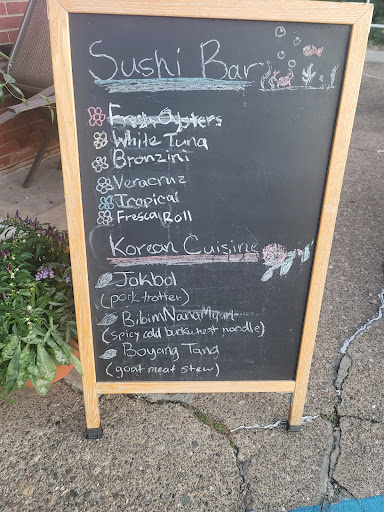 Sushi Bar
Fresh Oysters
White Tuna
Bronzini
Veracruz
Tropical
Fresca Roll
Korean Cuisine
Jokbal
(pork trotter)
Bibim Nang Myun
(spicy cold buckwheat noodle)
Boyang Tang
(goat meat stew)